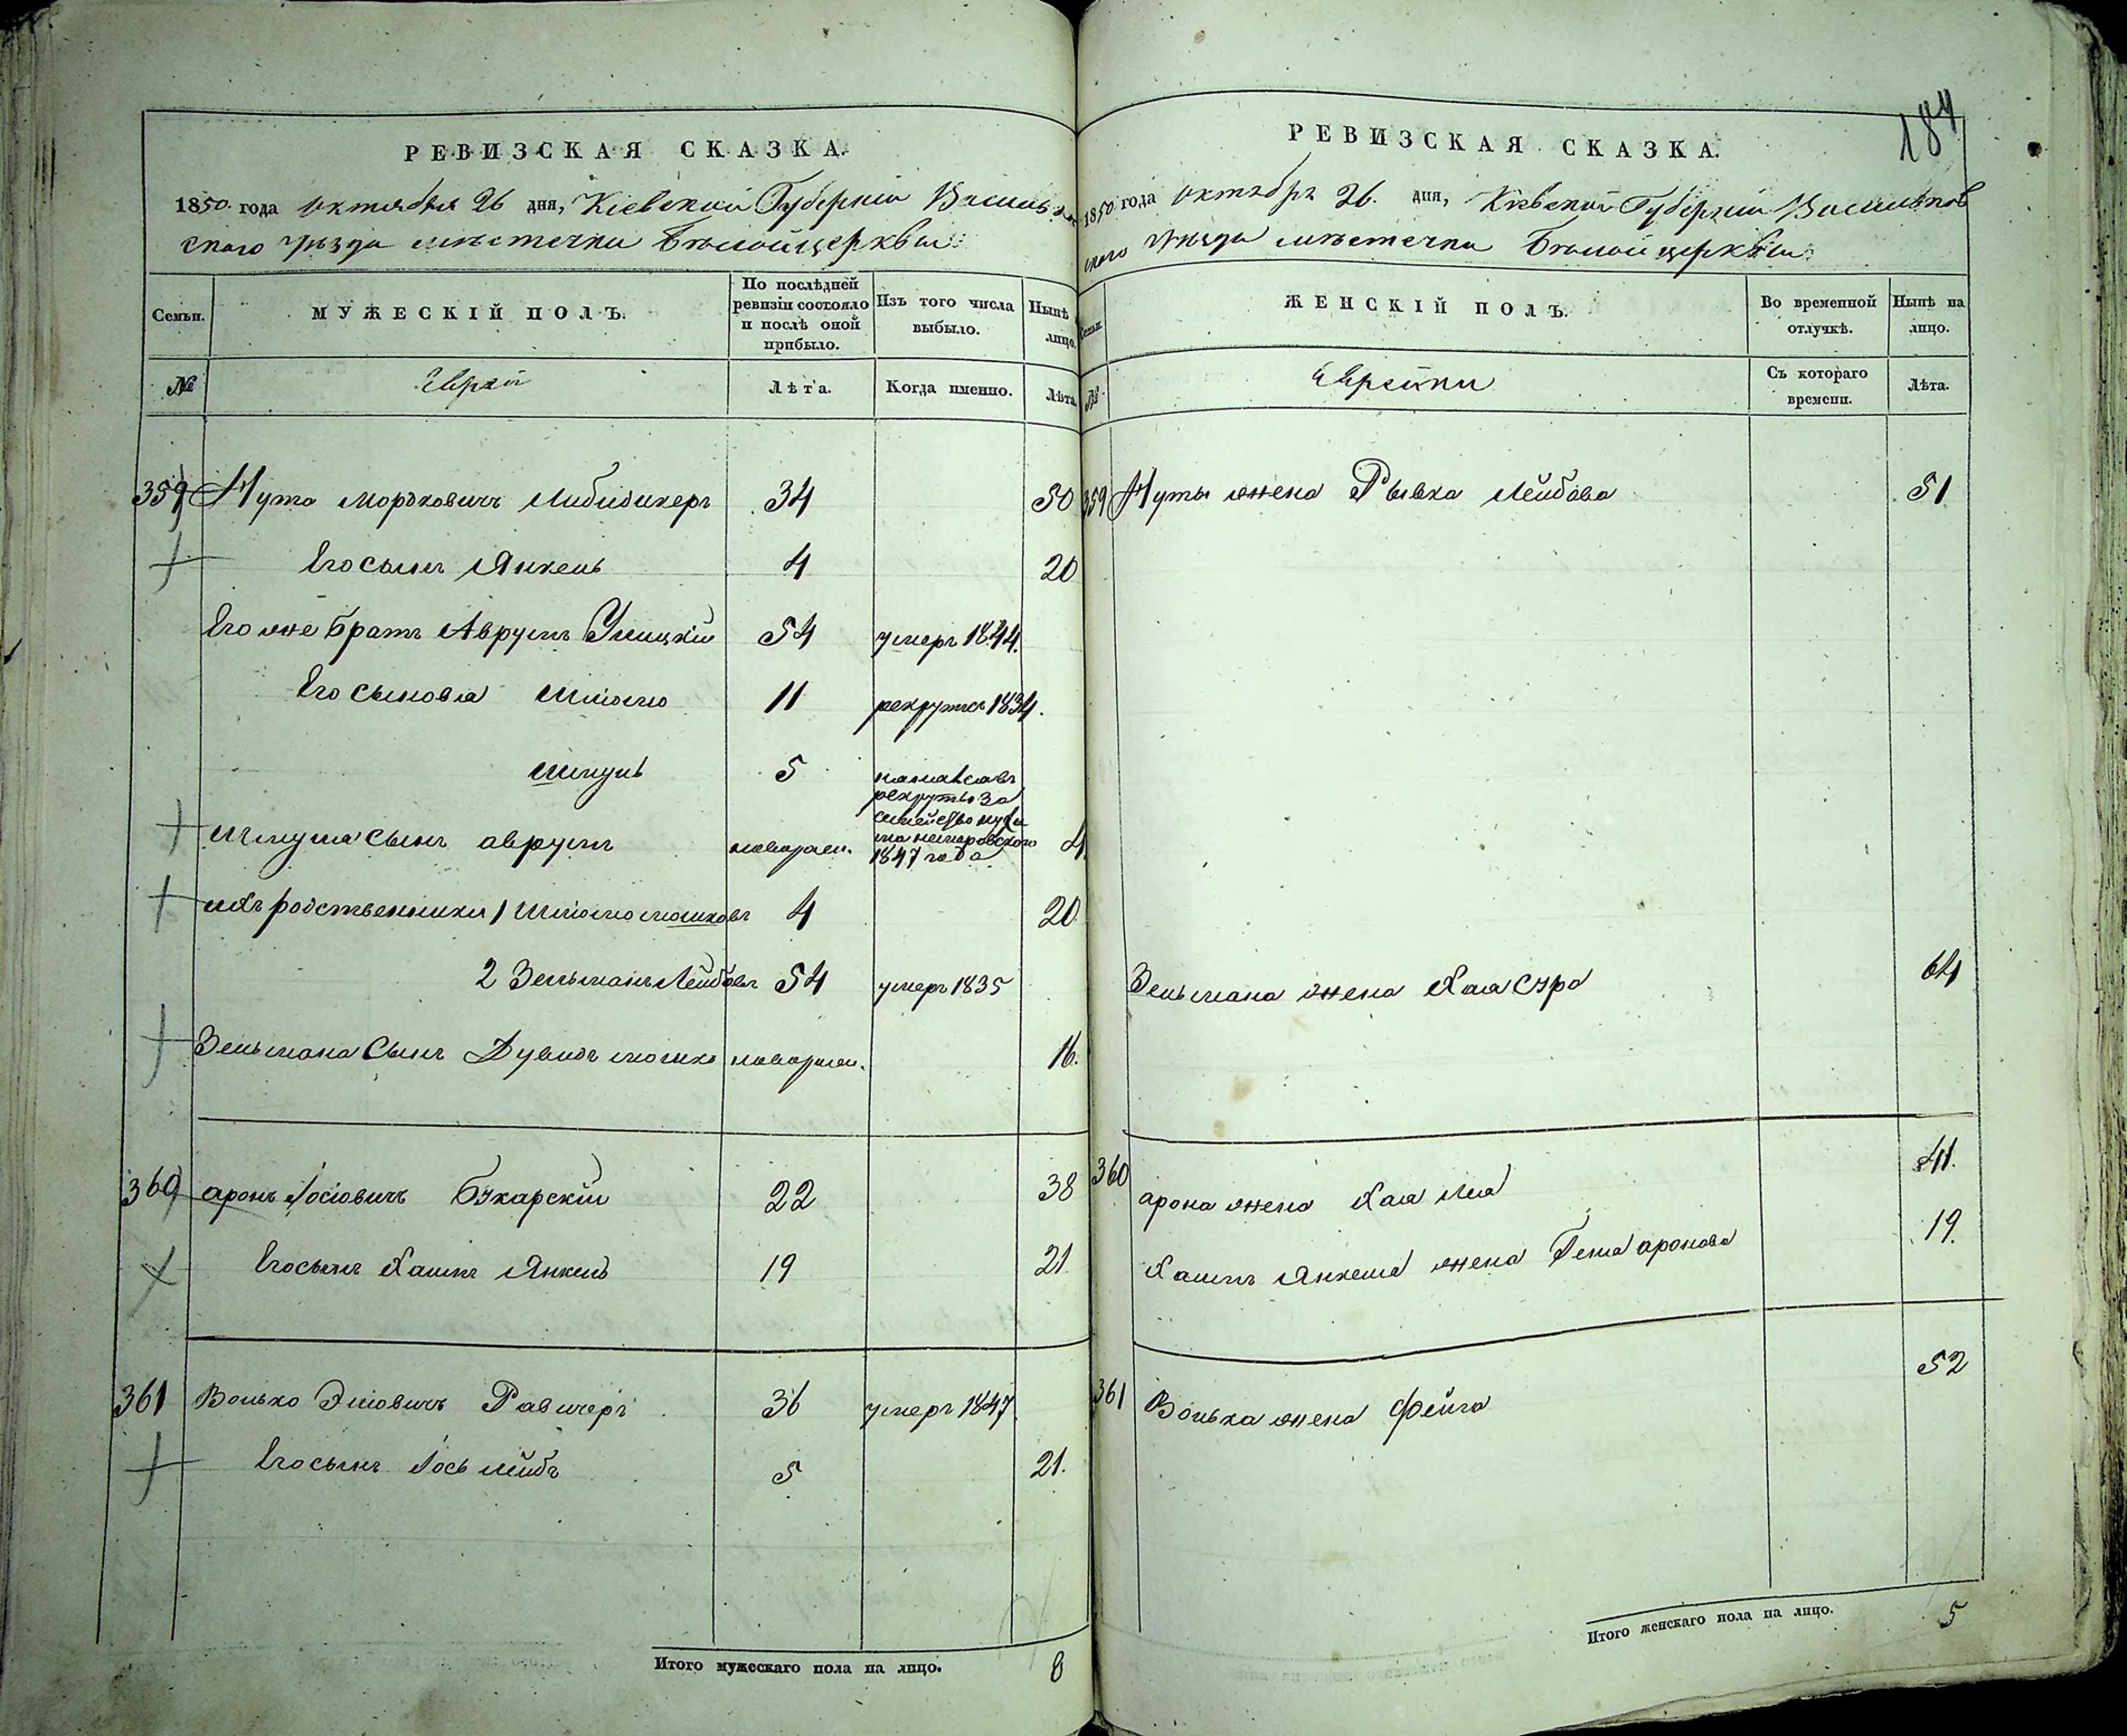 РЕВИЗСКАЯ СКАЗКА.
1850 года октября 26 дня, Кіевской Губерніи Васильков
ского уѣзда мѣстечка Бѣлойцеркви
Семьи.
МУЖЕСКІЙ ПОЛЪ.
По послѣдней ревизіи состояло и послѣ оной прибыло.
Изъ того числа выбыло.
Нынѣ лицо.
№
Евреи
Лѣта.
Когда именно.
Лѣта.
359 Нута Морьковичъ 34 50
Его сынъ Янкель 4 20
Его же братъ Аврумъ 54 умеръ 1844.
Его сыновья Шліома 11 рекрутъ 1834.
Шмуль 5
рекруты за
семейство
1847 года
Шмуля сынъ аврумъ поворож. 4
ихъ родственники 1 Шліома мошковъ 4 20
2 Зельманъ Лейбовъ 54 умеръ 1835
Зельмана Сынъ Дувидъ мошко поворож. 16.
360 аронъ Іосіовичъ 22 38
Его сынъ Хаимъ Янкель 19 21
361 Волько Эліовичъ 36 умеръ 1847
Его сынъ Іось лейбъ 5 21.
Итого мужескаго пола на лицо. 8
184
РЕВИЗСКАЯ СКАЗКА.
1850 года октября 26. дня, Кіевской Губерніи Васильков
ского уѣзда мѣстечка Бѣлой церкви
Семьи.
ЖЕНСКІЙ ПОЛЪ.
Во временной отлучкѣ.
Нынѣ на лицо.
№
Еврейки
Съ котораго времени.
Лѣта.
359 Нуты жена Рывка Лейбова 51
Зельмана жена Хая Сура 64
360 арона жена Хая Лия 41.
Хаимъ Янкеля жена аронова 19.
361 Волька жена Фейга 52
Итого женскаго пола на лицо. 5